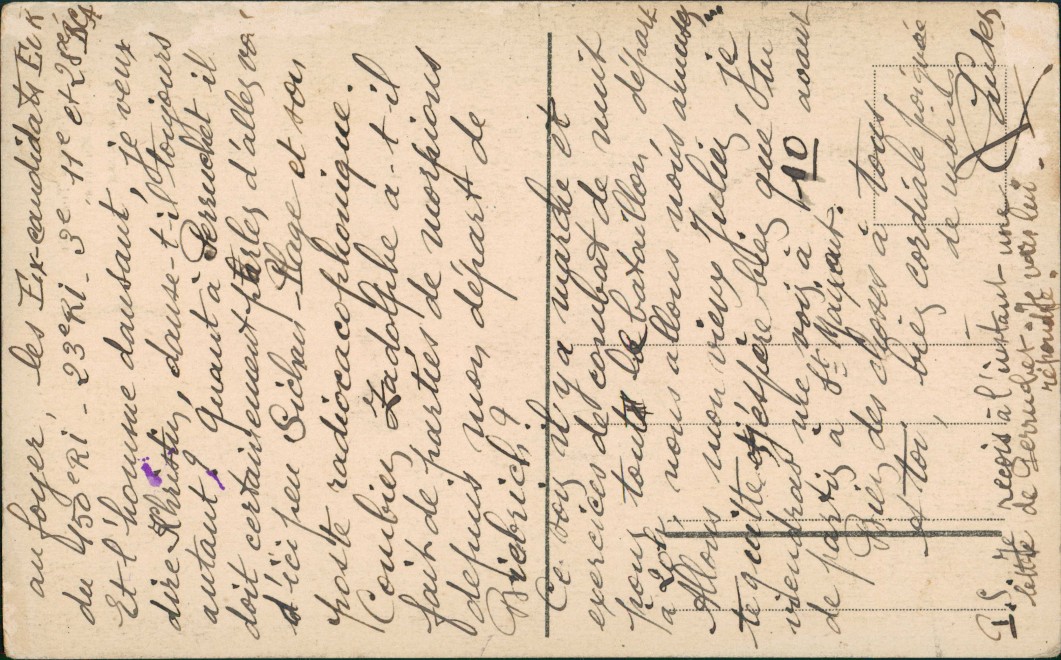 au foyer, les Ex-candidats E.O.R
du 150e RI - 23e RI - 3e 11e et 28e BCA
Et l'homme dansant, je veux
dire danse-t-il toujours
autant? Quant à Perruchet il
doit certainement parler d'aller vo
d'ici peu Plage et son
poste radiocacophonique.
Combien Zadolphe a-t-il
fait de parties de morpions
depuis mon départ de
Briebrich?
Ce soir il y a marche et
exercices de combat de nuit
pour tout le bataillon, départ
à nous allons nous amuser
Allons mon vieux Julien, je
te quitte et j'espère bien que tu
viendras me voir à 10 avant
de partir à St
Bien des choses à tous
et toi, bien cordiale poignée
de mains
P.S. Je reçois à l'instant une
lettre de Perruchet "vais lui
répondre".